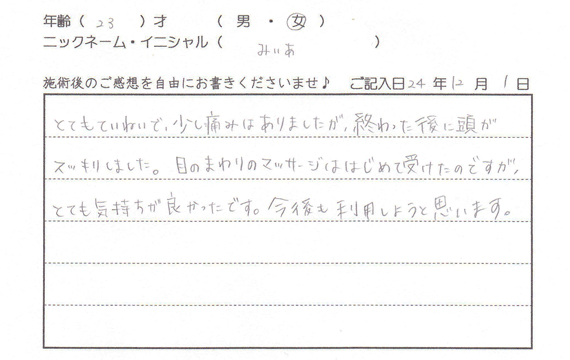 年齢（ 23 ）才　（ 男 ・ 女 ）
ニックネーム・イニシャル（ みぃあ ）
施術後のご感想を自由にお書きくださいませ♪　ご記入日 24 年 12 月 1 日
とてもていねいで、少し痛みはありましたが、終わった後に頭が
スッキリしました。目のまわりのマッサージははじめて受けたのですが、
とても気持ちが良かったです。今後も利用しようと思います。